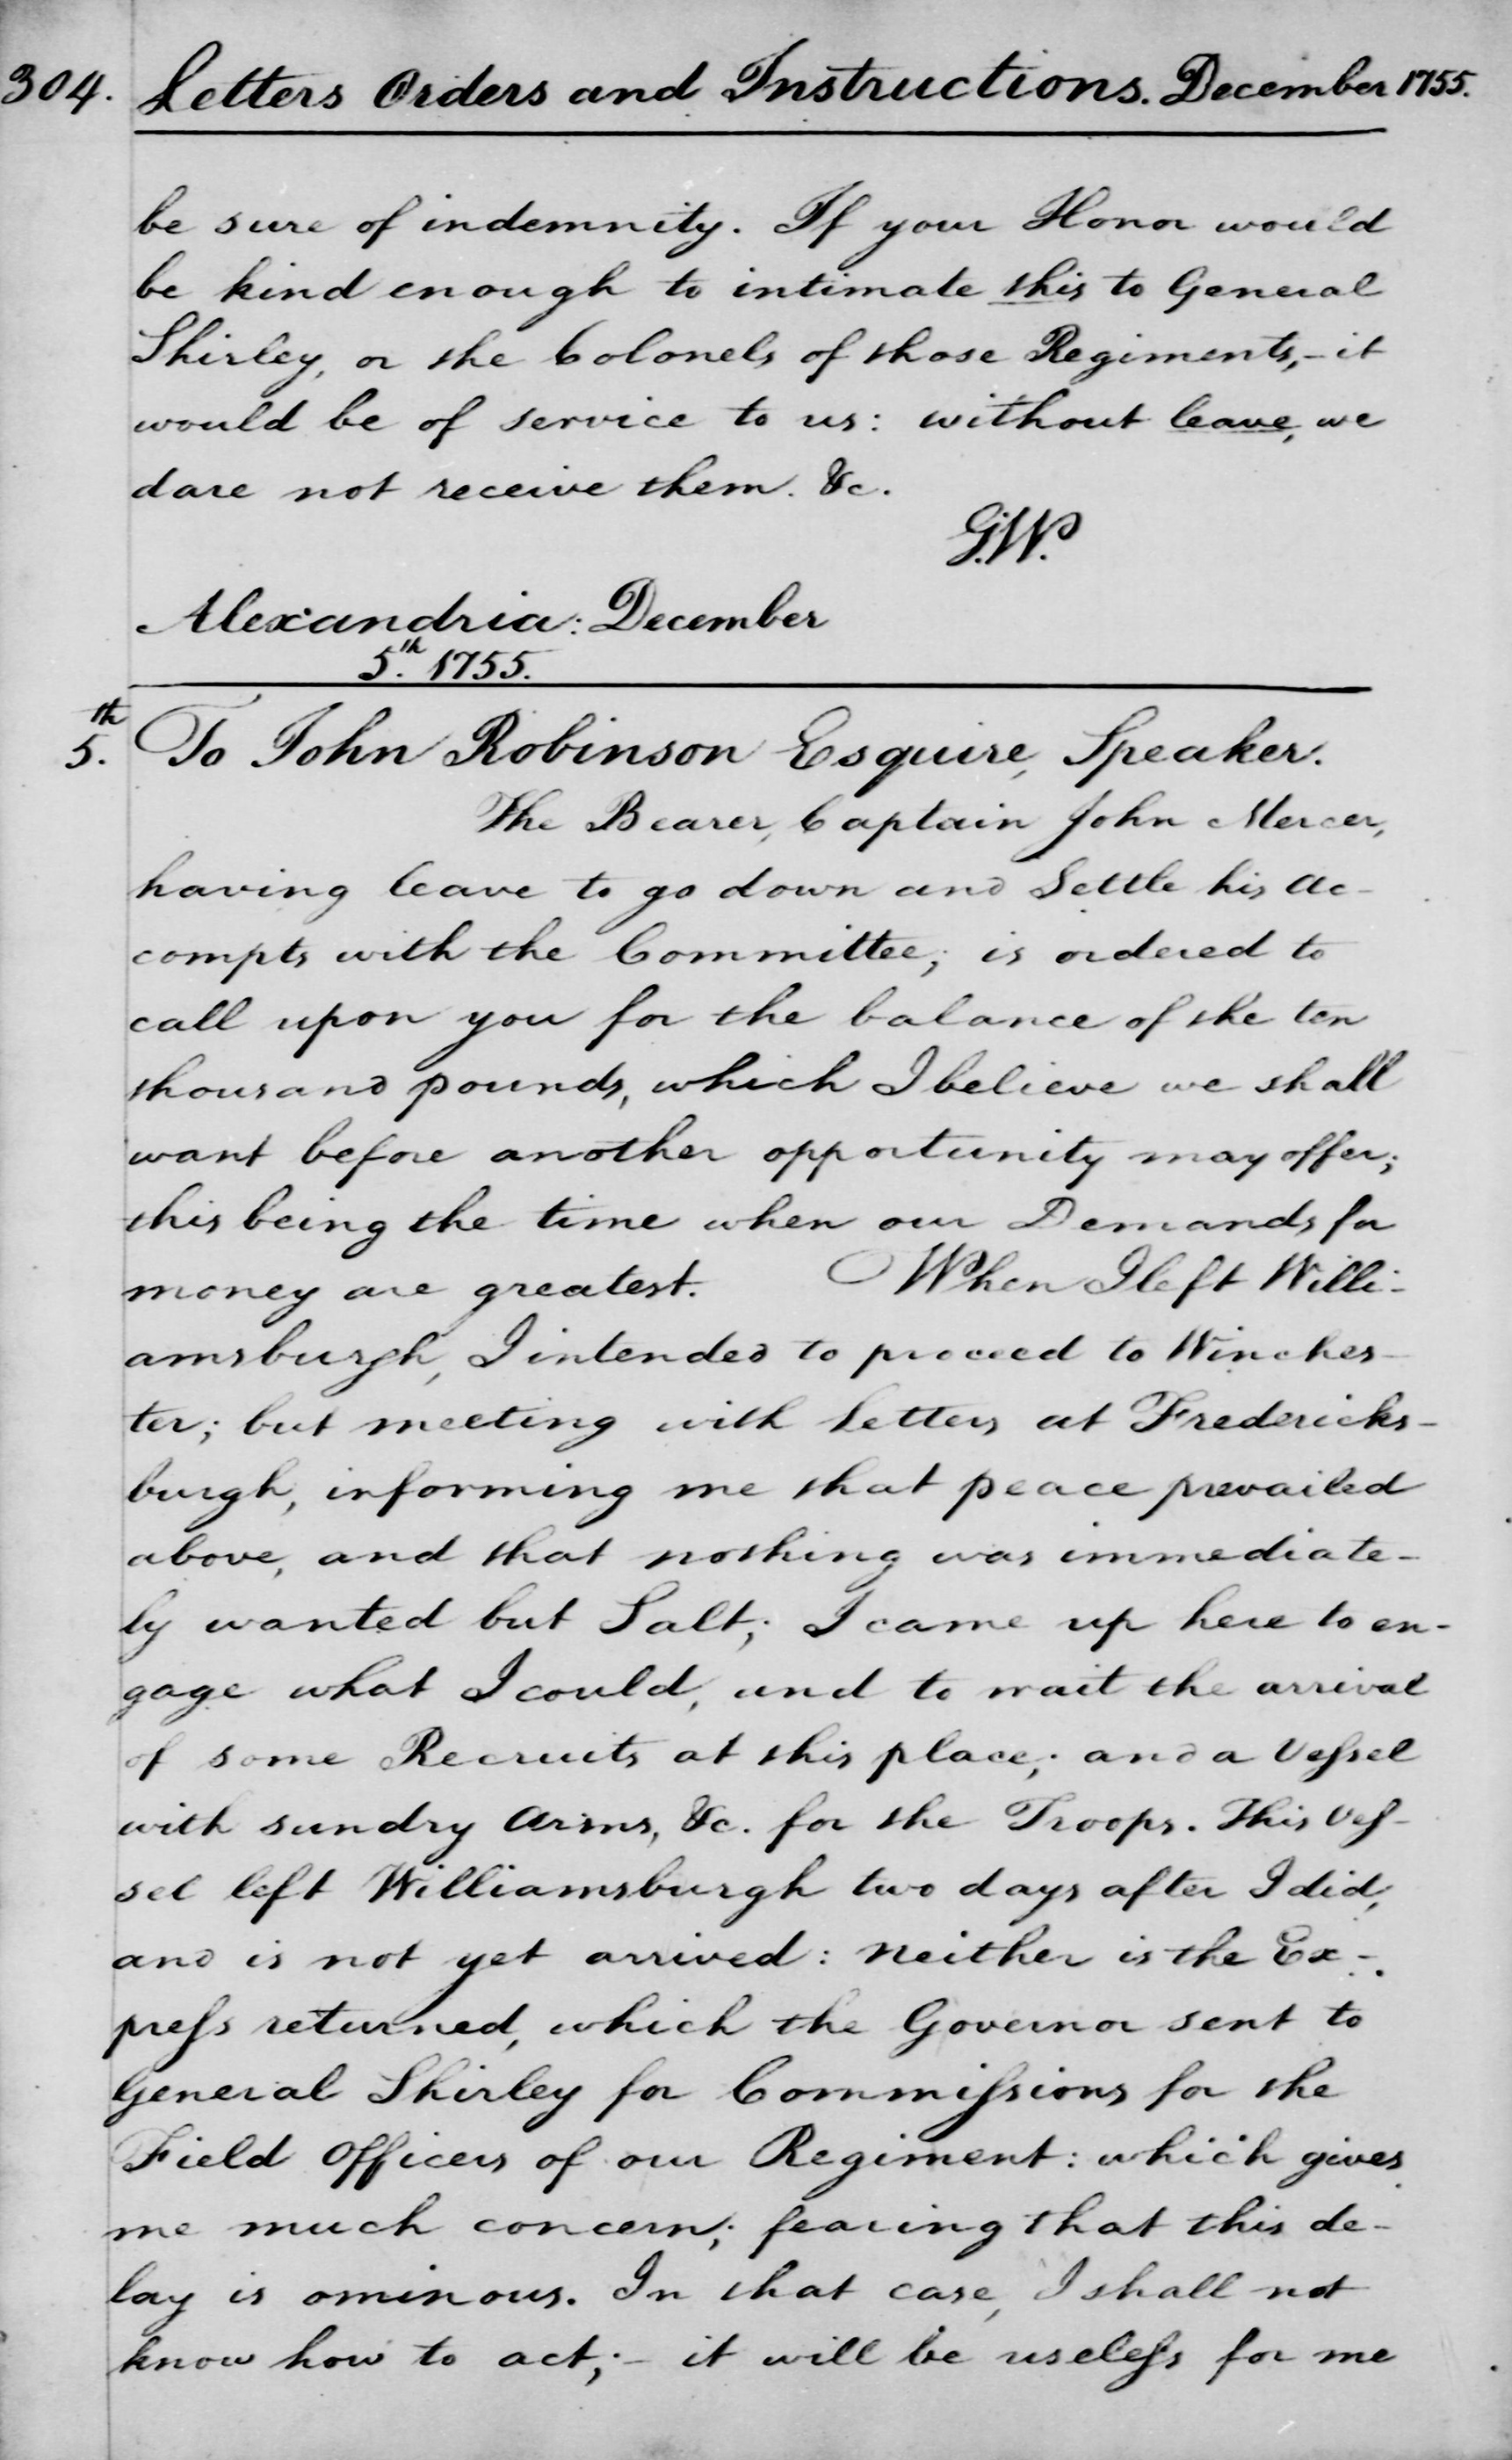 304. Letters Orders and Instructions. December 1755.
be sure of indemnity. If your Honor would
be kind enough to intimate this to General
Shirley, or the Colonels of those Regiments,- it
would be of service to us: without leave, we
dare not receive them. &c.
G.W.
Alexandria: December
5.th 1755.
5.th To John Robinson Esquire, Speaker.
The Bearer, Captain John Mercer,
having leave to go down and Settle his Ac-
compts with the Committee; is ordered to
call upon you for the balance of the ten
thousand pounds, which I believe we shall
want before another opportunity may offer;
this being the time when our Demands for
money are greatest. When I left Willi-
amsburgh, I intended to proceed to Winches-
ter; but meeting with Letters at Fredericks-
burgh, informing me that peace prevailed
above, and that nothing was immediate-
ly wanted but Salt; I came up here to en-
gage what I could, and to wait the arrival
of some Recruits at this place; and a Vessel
with sundry Arms, &c. for the Troops. This Ves-
sel left Williamsburgh two days after I did,
and is not yet arrived: neither is the Ex-
press returned, which the Governor sent to
General Shirley for Commissions for the
Field Officers of our Regiment: which gives
me much concern; fearing that this de-
lay is ominous. In that case, I shall not
know how to act;- it will be useless for me